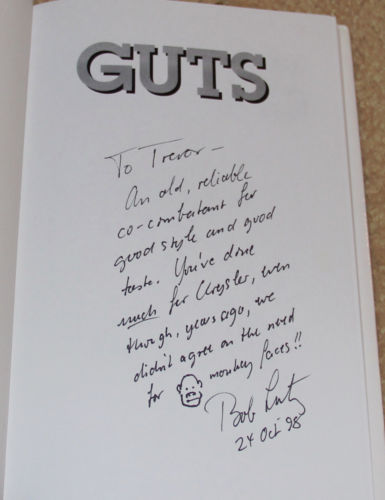 GUTS
To Trevor –
An old, reliable
co-combatant for
good style and good
taste. You've done
much for Chrysler, even
though, years ago, we
didn't agree on the need
for monkey faces!!
Bob Lutz
24 Oct 98